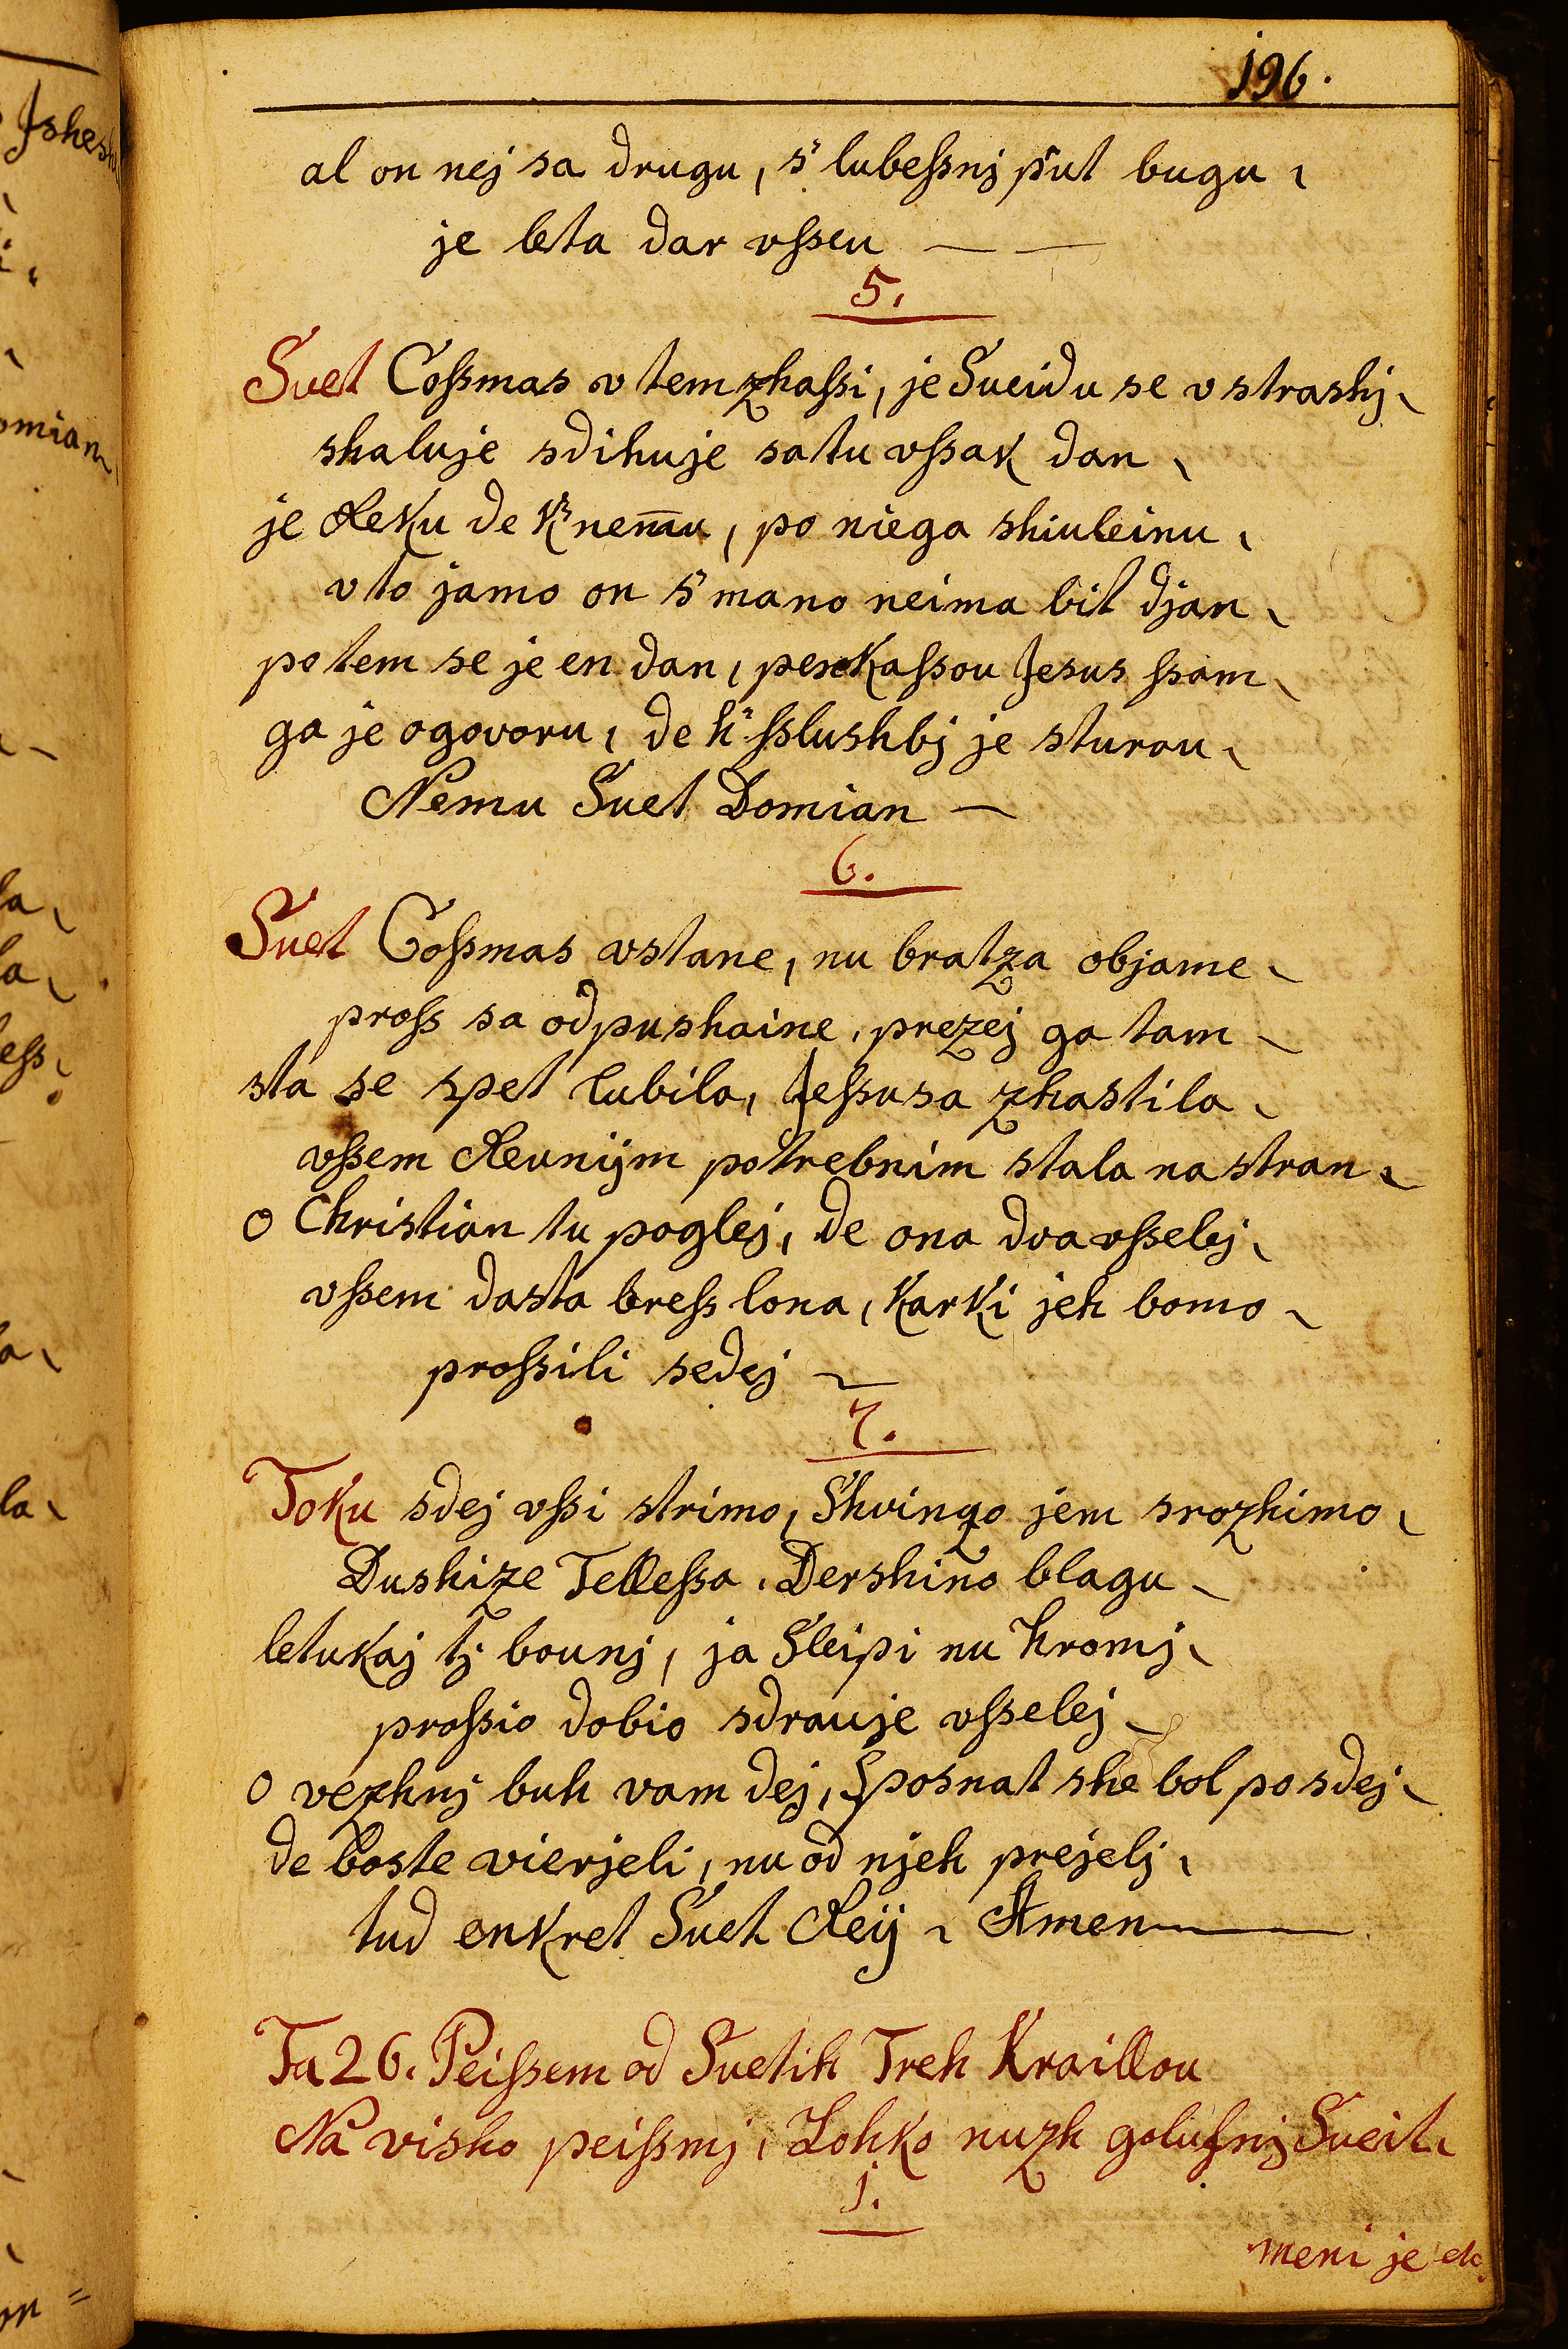 196.
al on nej sa drugu, s' lubeſsnj put bugu,
je leta dar vſseu — —
5.
Svet Coſsmas v tem zhaſsi, je Sveidu se v strashj,
shaluje sdihuje sa tu vſsak dan,
je Reku de k' nem̄u, po niega shiuleinu,
v to jamo on s' mano neima bit djan,
potem se je en dan, perkaſsou Jesus ſsam,
ga je ogovoru, de h' ſslushbj je sturou,
Nemu Svet Domian —
6.
Svet Coſsmas vstane, nu bratza objame,
proſs sa odpushaine, prezej ga tam,
sta se spet lubila, Jeſsusa zhastila,
vſsem Reunijm potrebnim stala na stran,
o Christian tu poglej, de ona dva vſselej,
vſsem dasta breſs lona, karki jeh bomo,
proſsili sedej
7.
Toku sdej vſsi strimo, Shvingo jem srozhimo,
Dushize Telleſsa, Dershino blagu,
letukaj tj bounj, ja Sleipi nu hromj,
proſsio dobio sdrauje vſselej,
o vezhnj buh vam dej, Sposnat she bol po sdej,
de boste vierjeli, nu od njeh prejelj,
tud enkret Svet Reij, Amen
Ta 26. Peiſsem od Svetih Treh Kraillou
Na visho peiſsmj, Lohko nuzh golufnj Sveit,
1.
meni je etc.
Jshest
omian
la,
la,
leſs,
la,